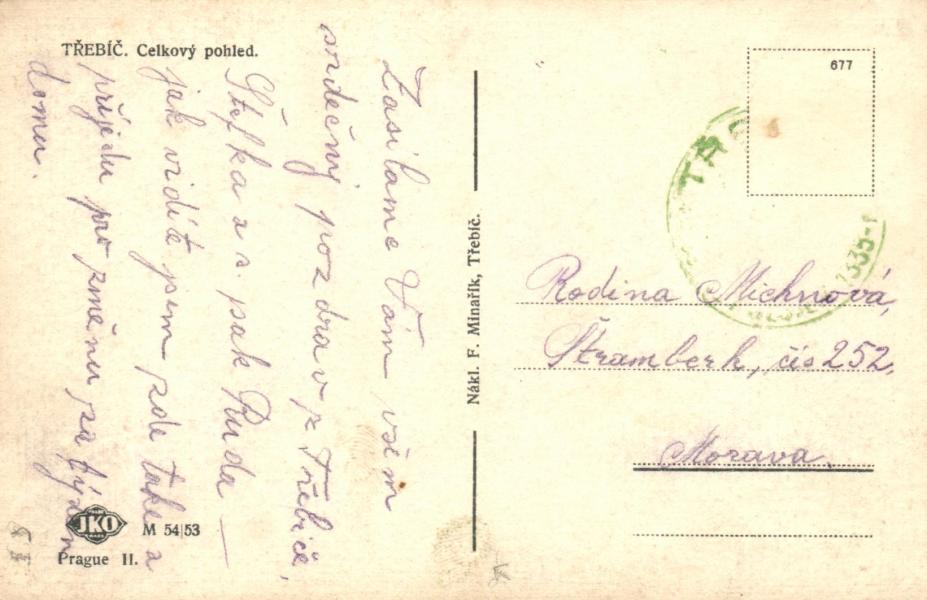 TŘEBÍČ. Celkový pohled.
Zasílame Vám všem
srdečný pozdrav z Třebíče,
Štefka a s. psak Ruda —
jak vidíte jsem zde take a
přijedu pro změnu za týden
domu.
JKO
M 54/53
Prague II.
Nákl. F. Minařík, Třebíč.
677
TŘE
1335-1
Rodina Michnová,
Štramberk, čís 252.
Morava.